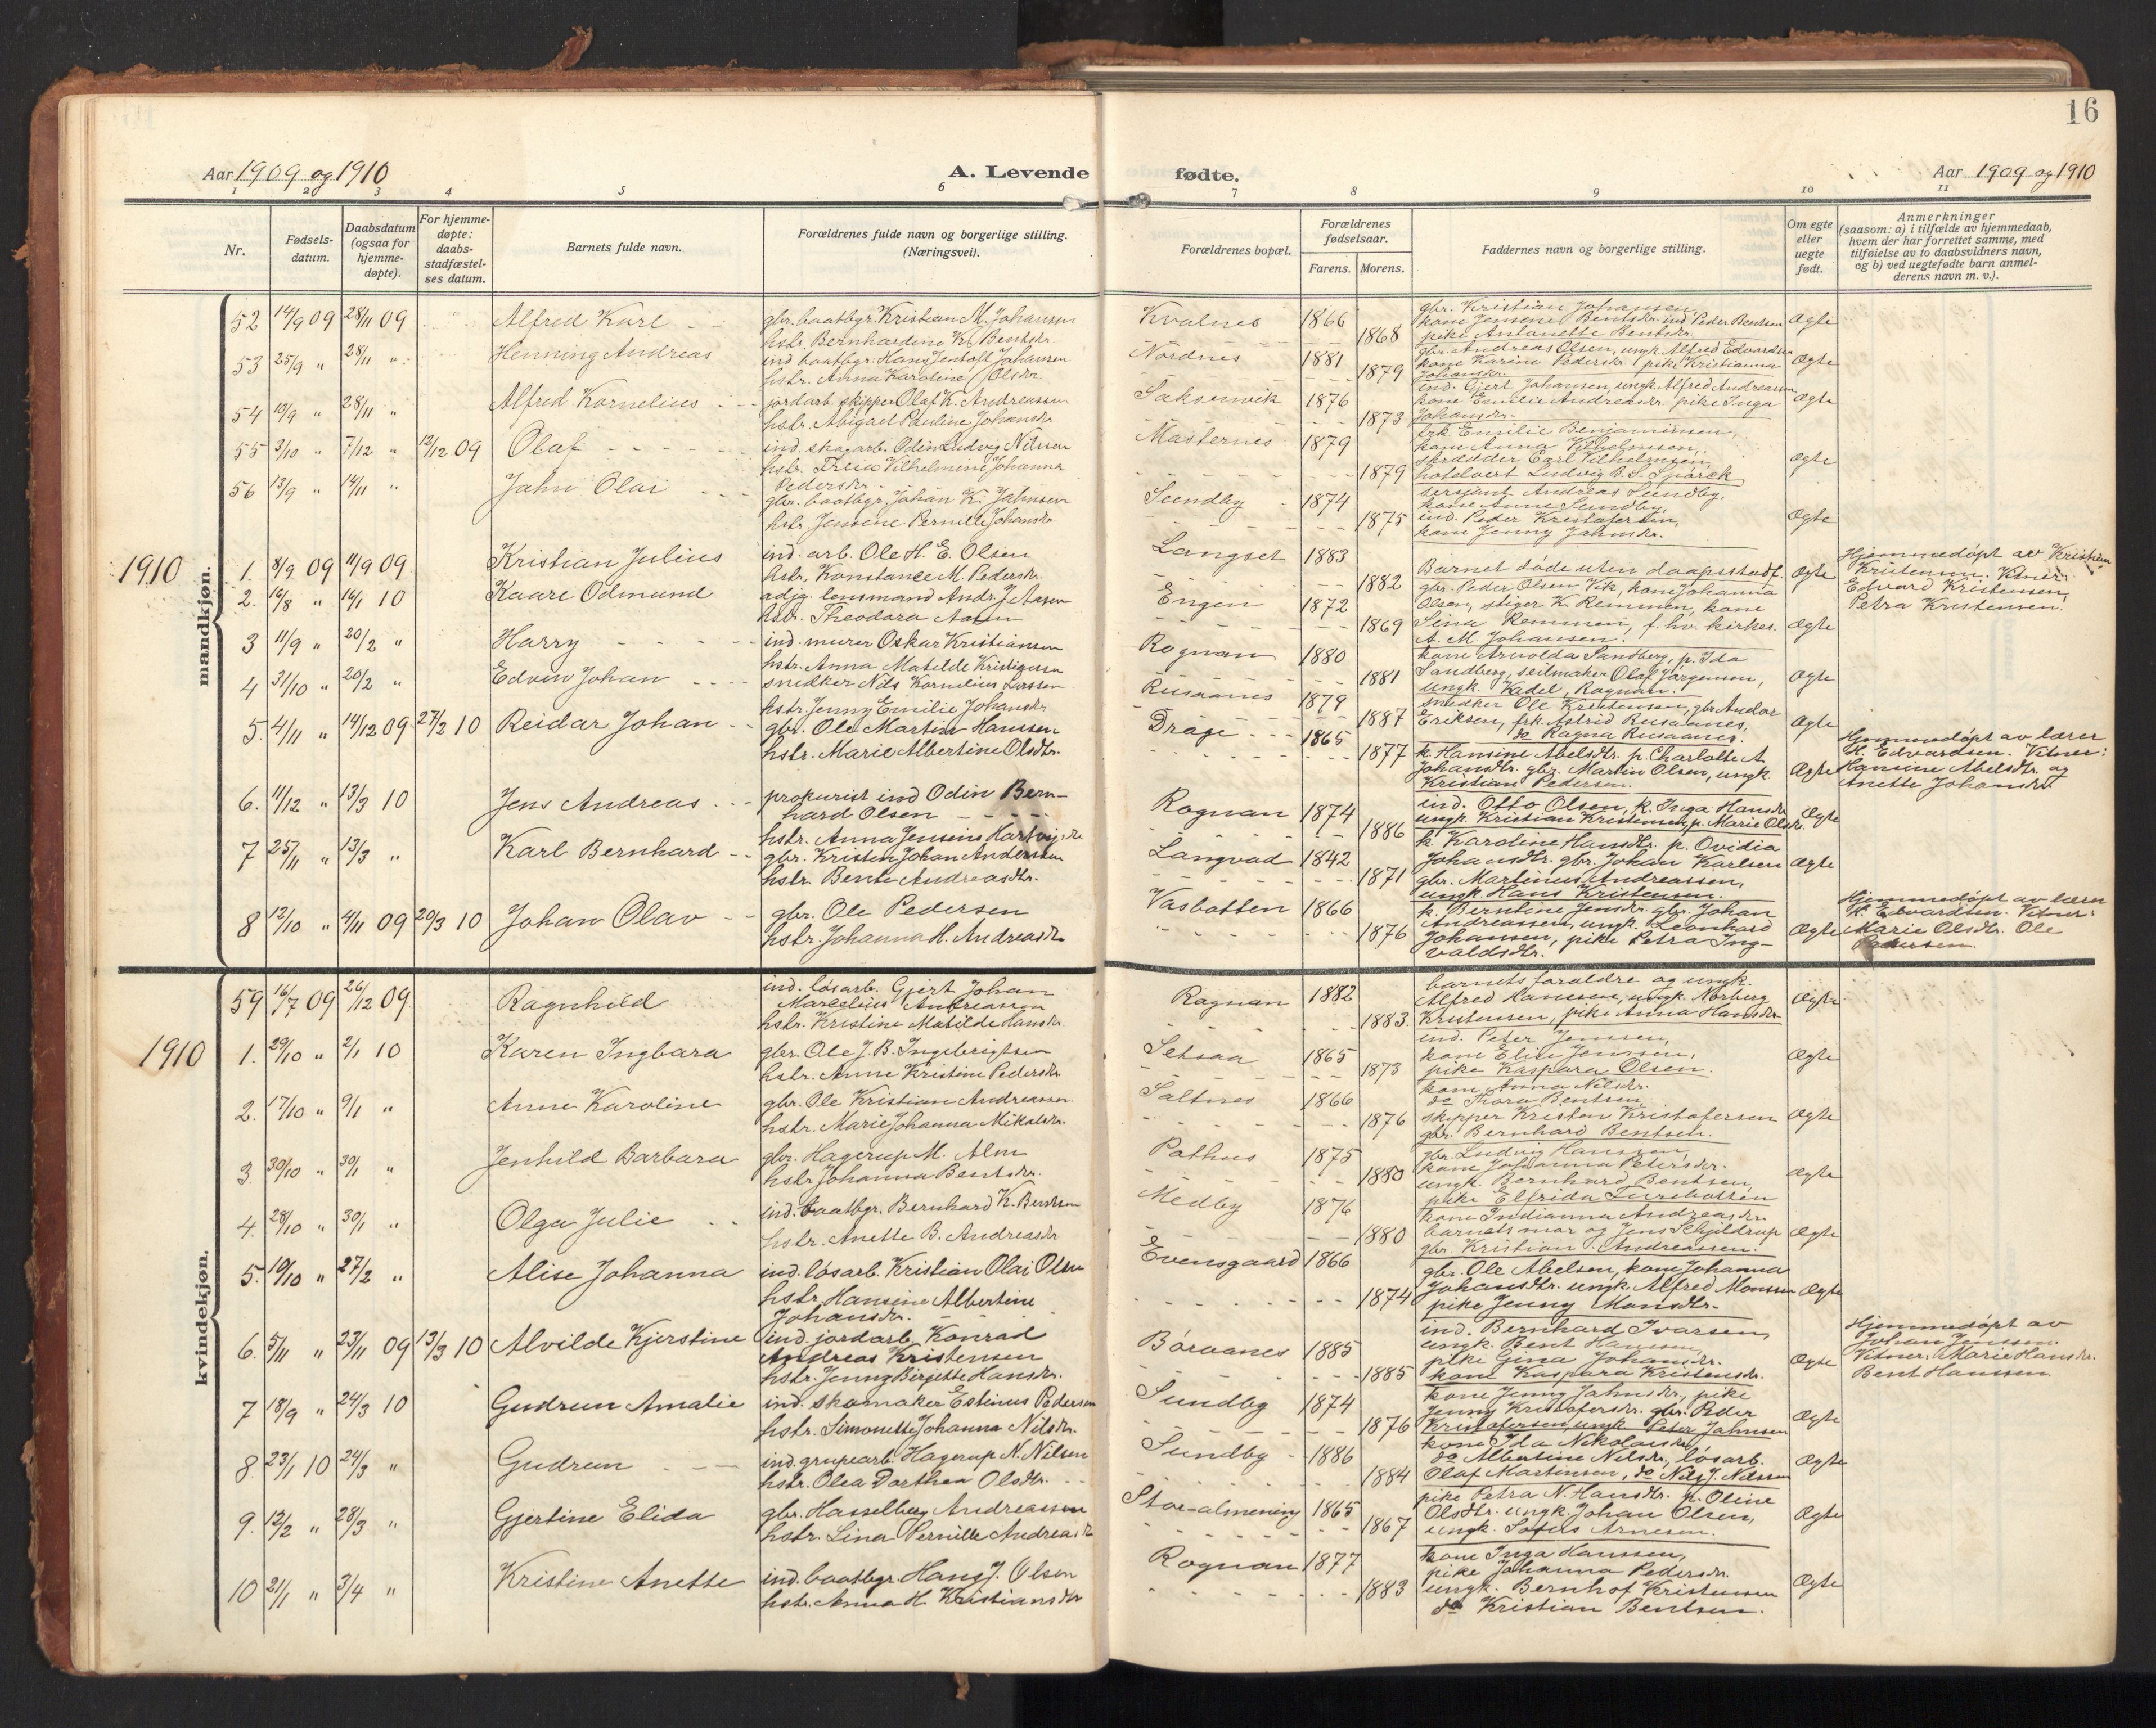 16
Aar 1909 og 1910
A. Levende
fødte.
Aar 1909 og 1910
1 2 3 4 5 6 7 8 9 10 11
Nr.
Fødsels-
datum.
Daabsdatum
(ogsaa for
hjemme-
døpte).
For hjemme-
døpte:
daabs-
stadfæstel-
ses datum.
Barnets fulde navn.
Forældrenes fulde navn og borgerlige stilling.
(Næringsvei).
Forældrenes bopæl.
Forældrenes
fødselsaar.
Farens. Morens.
Faddernes navn og borgerlige stilling.
Om egte
eller
uegte
født.
Anmerkninger
(saasom: a) i tilfælde av hjemmedaab,
hvem der har forrettet samme, med
tilføielse av to daabsvidners navn,
og b) ved uegtefødte barn anmel-
derens navn m. v.).
mandkjøn.
52 14/9 09 28/11 09 Alfred Karl gbr. baatbgr. Kristian M. Johansen Kvalnes 1866
hstr. Bernhardine K. Bentsdr. 1868
gbr. Kristian Johansen
kone Jensine Bentsdr. ind. Peder Bentsen
pike Antonette Bentsdr. Ægte
53 25/9 " 28/11 " Henning Andreas ind. baatbgr. Hans Jentoft Johansen Nordnes 1881
hstr. Anna Karoline Olsdr. 1879
gbr. Andreas Olsen, ungk. Alfred Edvardsen
kone Karine Pedersdr. pike Kristianna
Johansdr. Ægte
54 19/9 " 28/11 " Alfred Kornelius jordarb. skipper Olaf K. Andreassen Saksenvik 1876
hstr. Abigael Pauline Johansdr. 1873
ind. Gjert Johansen, ungk. Alfred Andreassen
kone Emilie Andreasdr. pike Inga
Johansdr. Ægte
55 3/10 " 7/12 " 12/12 09 Olaf ind. skogarb. Odin Ludvig Nilsen Masternes 1879
hstr. Vilhelmine Johanna
Pedersdr. 1879
frk. Emilie Benjaminsen,
kone Anna Vilhelmsen,
skrædder Carl Vilhelmsen,
hotelvert Ludvig B. S. Ægte
56 13/9 " 14/11 " Jahn Olai gbr. baatbgr. Johan K. Jahnsen Sundby 1874
hstr. Jensine Pernille Johansdr. 1875
sersjant Andreas Sundby,
kone Anne Sundby,
ind. Peder Kristofersen,
kone Jenny Jahnsdr. Ægte
1910
1. 8/9 09 11/9 09 Kristian Julius ind. arb. Ole H. E. Olsen Langset 1883
hstr. Konstance M. Pedersdr. 1882
Barnet døde uten daapsstadf. Ægte
Hjemmedøpt av Kristian
Kristensen. Vitner:
Edvard Kristensen,
Petra Kristensen.
2. 16/8 " 16/1 10 Kaare Odmund adjg. lensmand Andr. J. Aasen Engen 1872
hstr. Theodora Aasen 1869
gbr. Peder Olsen Vik, kone Johanna
Olsen, stiger K. Remmen, kone
Lina Remmen, f. hv. kirkes.
A. M. Johansen. Ægte
3 11/9 " 20/2 " Harry ind. murer Oskar Kristiansen Rognan 1880
hstr. Anna Matilde Kristiansen 1881
kone Arnolda Sandberg, p. Ida
Sandberg, seilmaker Olaf Jørgensen,
ungk. Kadel, Rognan. Ægte
4 31/10 " 20/2 " Edvin Johan snedker Nils Kornelius Larssen Rusaanes 1879
hstr. Jenny Emilie Johansdr. 1887
snedker Ole Kristensen, gbr. Andor
Eriksen, frk. Astrid Rusaanes,
do Ragna Rusaanes. Ægte
5. 4/11 " 14/12 09 27/2 10 Reidar Johan gbr. Ole Martin Hansen Drage 1865
hstr. Marie Albertine Olsdtr. 1877
k. Hansine Abelsdtr. p. Charlotte A.
Johansdtr. gbr. Martin Olsen, ungk.
Kristian Pedersen. Ægte
Hjemmedøpt av lærer
H. Edvardsen. Vitner:
Hansine Abelsdtr. og
Anette Johansdtr.
6. 11/12 " 13/3 10 Jens Andreas prokurist ind Odin Bern-
hard Olsen Rognan 1874
hstr. Anna Jensine Hartvigsdr. 1886
ind. Otto Olsen, k. Inga Hansdr.
ungk. Kristian Kristensen, p. Marie Olsdr. Ægte
7 25/11 " 13/3 " Karl Bernhard gbr. Kristen Johan Anderssen Langvad 1842
hstr. Bente Andreasdtr. 1871
k. Karoline Hansdtr. p. Ovidia
Johansdtr. gbr. Johan Karlsen
gbr. Martinus Andreassen,
ungk. Hans Kristensen. Ægte
8 12/10 " 4/11 09 20/3 10 Johan Olav gbr. Ole Pedersen Vasbotten 1866
hstr. Johanna H. Andreasdtr. 1876
k. Berntine Jensdtr. gbr. Johan
Andreassen, ungk. Leonhard
Johansen, pike Petra Ing-
valdsdtr. Ægte
Hjemmedøpt av lærer
H. Edvardsen. Vitner:
Marie Olsdtr. Ole
Pedersen.
kvindekjøn.
59 16/7 09 26/12 09 Ragnhild ind. løsarb. Gjert Johan
Marcelius Andreassen Rognan 1882
hstr. Kristine Matilde Hansdr. 1883.
barnets forældre og ungk.
Alfred Hanssen, ungk. Norberg
Kristensen, pike Anna Hansdtr. Ægte
1910
1. 29/10 " 2/1 10 Karen Ingbara gbr. Ole J. B. Ingebrigtsen Setsaa 1865
hstr. Anne Kristine Pedersdr. 1873
ind. Peter Jenssen,
kone Elise Jenssen,
pike Kaspara Olsen. Ægte
2. 17/10 " 9/1 " Anne Karoline gbr. Ole Kristian Andreassen Saltnes 1866
hstr. Marie Johanna Mikalsdr. 1876
kone Anna Nilsdr.
do Thora Bentsen,
skipper Kristen Kristofersen
gbr. Bernhard Bentsen. Ægte
3. 30/10 " 30/1 " Jenhild Barbara gbr. Hagerup M. Alm Pothus 1875
hstr. Johanna Bentsdr. 1880
gbr. Ludvig Hanssen,
kone Johanna Petersdr.
ungk. Bernhard Bentsen,
pike Elfrida Turebotten Ægte
4. 28/10 " 30/1 " Olga Julie ind. baatbgr. Bernhard K. Bentsen Medby 1876
hstr. Anette B. Andreasdr. 1880
kone Indianna Andreasdr.
barnets mor og Jens Schjeldrup
gbr. Kristian Andreassen. Ægte
5. 10/10 " 27/2 " Alise Johanna ind. løsarb. Kristian Olai Olsen Evensgaard 1866
hstr. Hansine Albertine
Johansdr. 1874
gbr. Ole Abelsen, kone Johanna
Johansdtr. ungk. Alfred Monssen
pike Jenny Monsdtr. Ægte
6. 5/11 " 23/11 09 13/3 10 Alvilde Kjerstine ind. jordarb. Konrad
Andreas Kristensen Børaanes 1885
hstr. Jenny Birgitte Hansdr. 1885
ind. Bernhard Ivarsen,
ungk. Bent Hanssen,
pike Gina Johansdr.
kone Kaspara Kristensdr. Ægte
Hjemmedøpt av
Johan Jenssen.
Vitner: Marie Hansdr.
Bent Hanssen.
7 18/9 " 24/3 10 Gudrun Amalie ind. skomaker Estinus Pedersen Sundby 1874
hstr. Simonette Johanna Nilsdr. 1876
kone Jenny Jahnsdr., pike
Jenny Kristofersdr. gbr. Peder
Kristofersen, ungk Peter Jahnsen Ægte
8 23/1 10 24/3 " Gudrun ind. grupearb. Hagerup N. Nilsen Sundby 1886
hstr. Olea Dorthea Olsdtr. 1884
kone Ida Nikolaisdr,
do Albertine Nilsdr, løsarb.
Olaf Martinsen, do Nils J. Nilssen Ægte
9. 12/2 " 28/3 " Gjertine Elida gbr. Hasselberg Andreassen Storalmening 1865
hstr. Lina Pernille Andreasdr 1867
pike Petra N. Hansdtr. p. Oline
Olsdtr. ungk. Johan Olsen,
ungk. Sofus Arnesen. Ægte
10 21/1 " 3/4 " Kristine Anette ind. baatbgr. Hans J. Olsen Rognan 1877
hstr. Anna H. Kristiansdtr 1883
kone Inga Hanssen,
pike Johanna Pedersdr.
ungk. Bernhof Kristensen
do Kristian Bentsen. Ægte